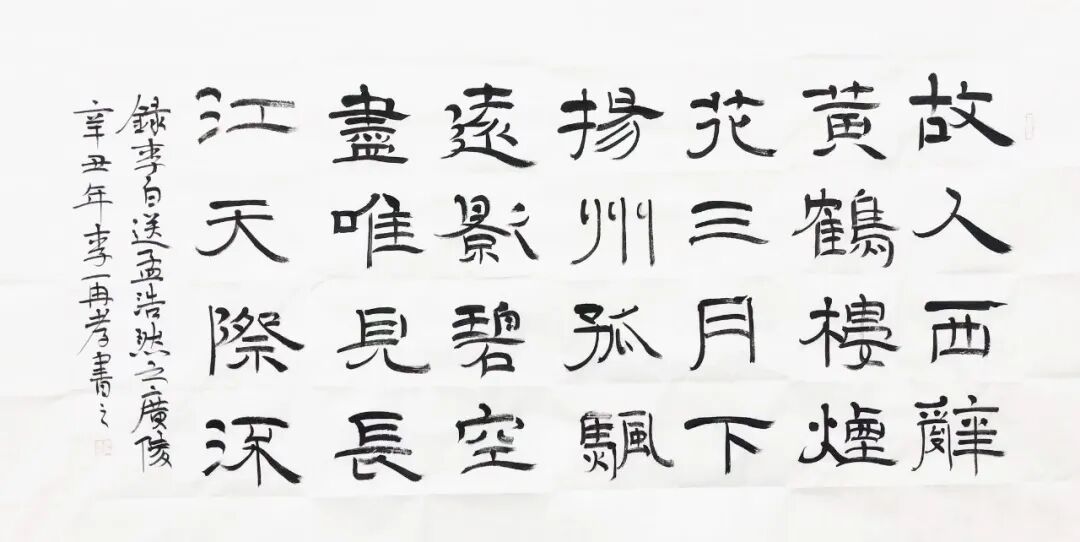 故人西辭
黄鶴樓煙
花三月下
揚州孤颿
遠影碧空
盡唯見長
江天際流
録李白送孟浩然之廣陵
辛丑年李再孝書之